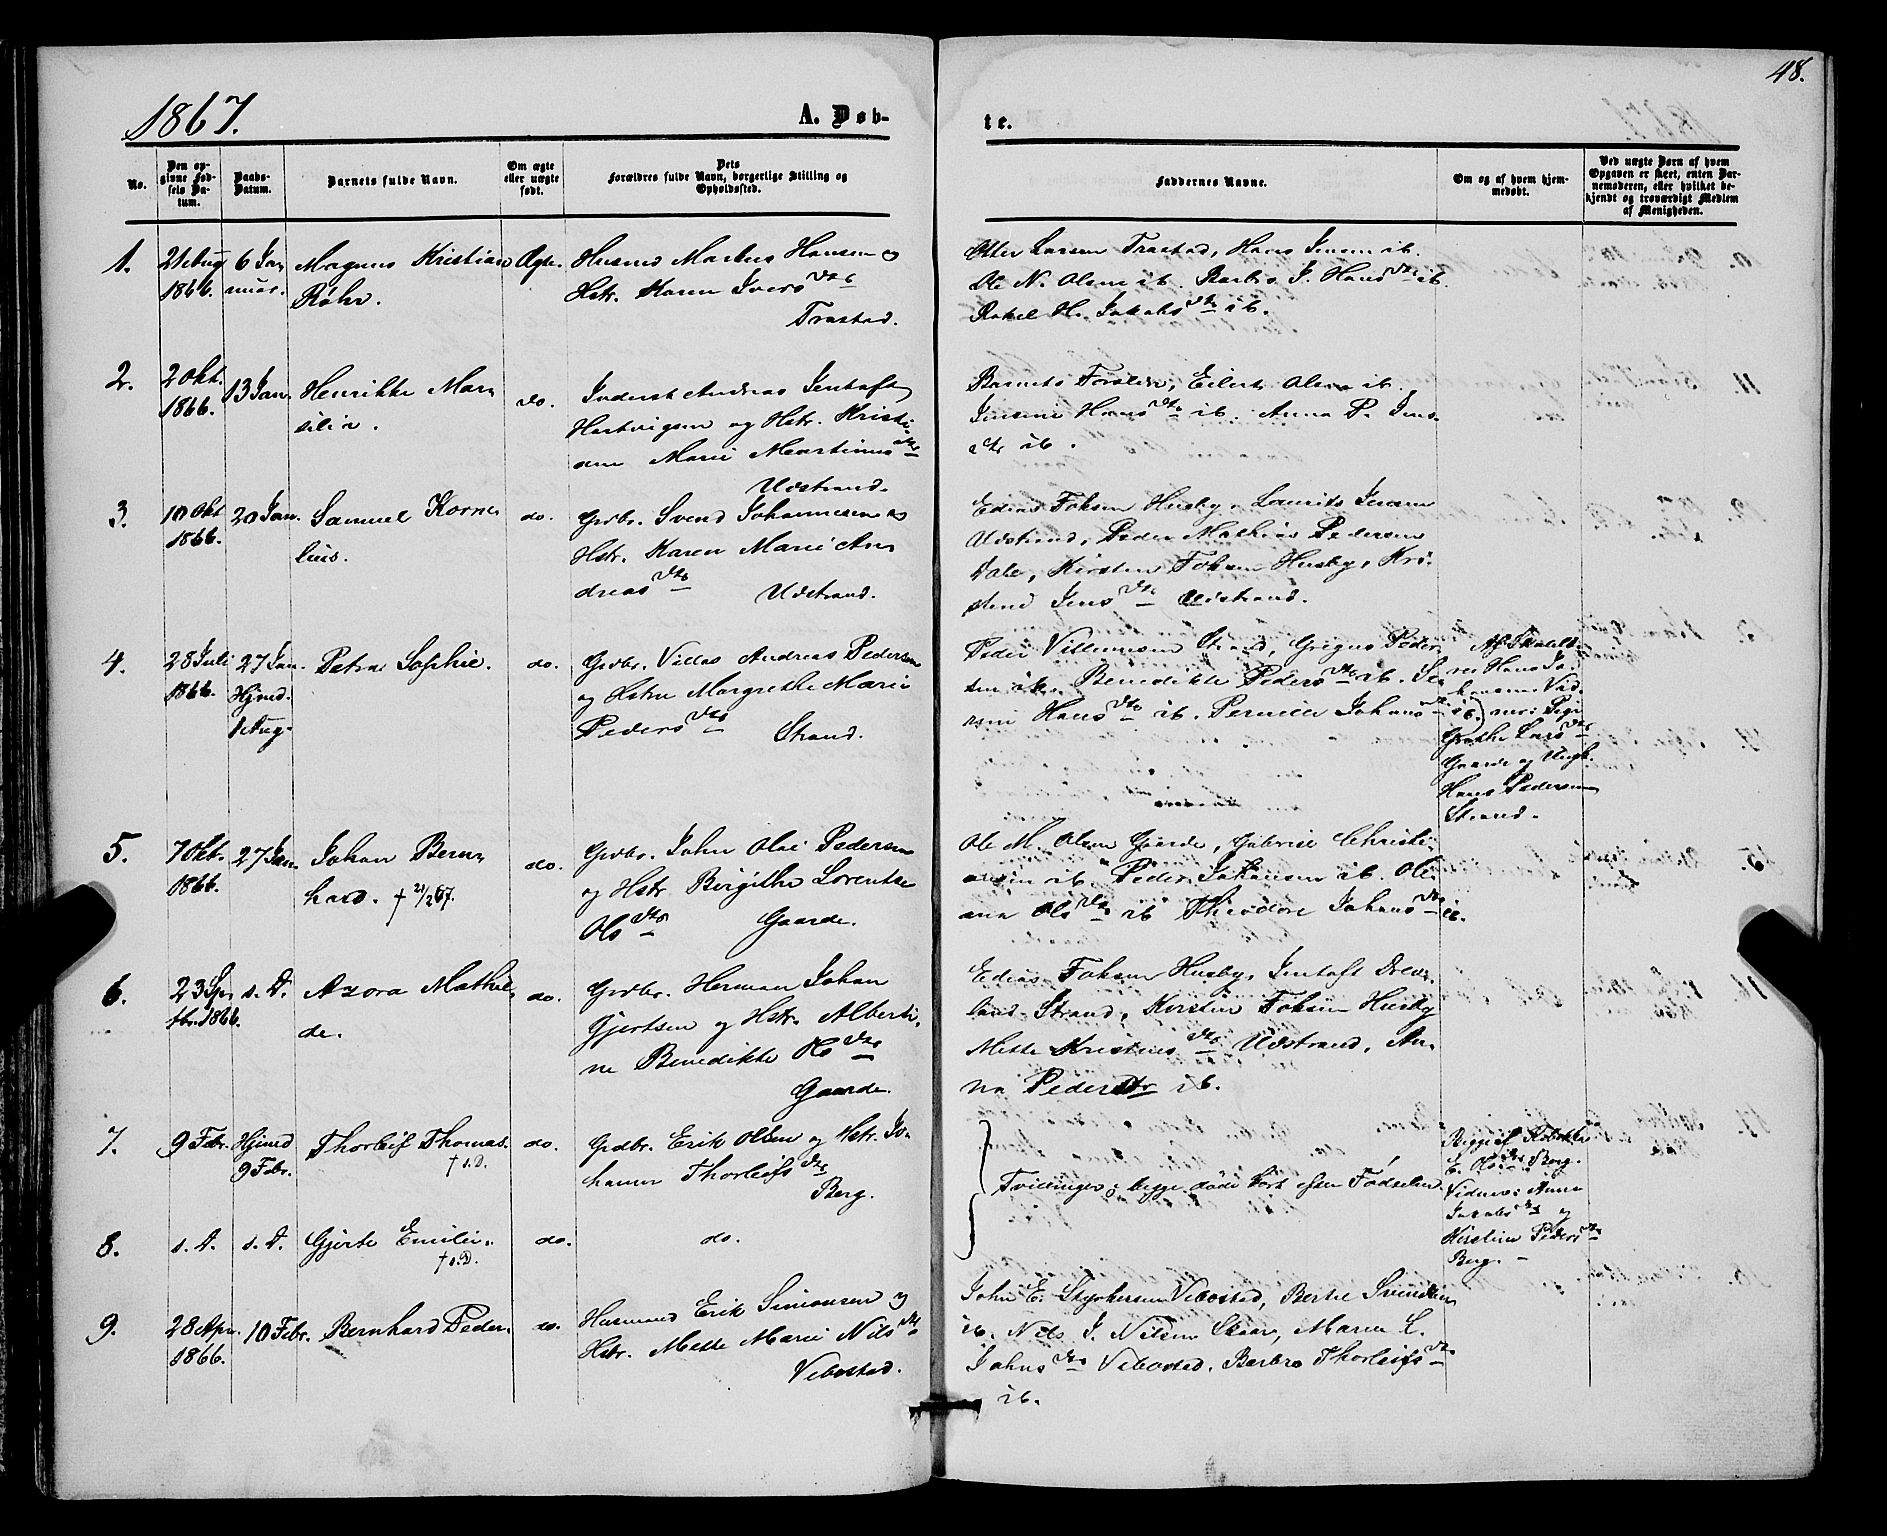 1867.
A. Døb-
te.
48.
No.
Den op-
givne Fød-
sels Da-
tum.
Daabs-
Datum.
Barnets fulde Navn.
Om ægte
eller uægte
født.
Dets
Forældres fulde Navn, borgerlige Stilling og
Opholdssted.
Faddernes Navne.
Om og af hvem hjem-
medøbt.
Ved uægte Børn af hvem
Opgaven er skeet, enten Bar-
nemoderen, eller hvilket be-
kjendt og troværdigt Medlem
af Menigheden.
1.
21 Aug
1866.
6 Jan
nuar.
Magnus Kristian
Røhr.
Ægte.
Husmd Markus Hansen og
Hstr. Karen Ivers dtr
Trastad.
Otter Larsen Trastad, Hans Jensen ib.
Ole N. Olsen ib. Hans dtr ib.
Rakel H. Jakobs dtr ib.
2.
2 Okt.
1866.
13 Jan.
Henrikke Mar
silie.
do.
Inderst Andreas Jentoft
Hartvigsen og Hstr. Kristi
ane Marie Martinus dtr
Udstrand.
Barnets Forældre, Eilert Olsen ib.
Jensine Hans dtr ib. Anna P. Jens
dtr ib.
3.
10 Okt
1866.
20 Jan.
Samuel Korne
lius.
do.
Grdbr. Svend Johannesen og
Hstr. Karen Marie An
dreas dtr
Udstrand.
Edias Foksen Husby, Laurits Jensen
Udstrand, Peder Mathias Pedersen
Dale, Kirsten Foksen Husby, Kri-
stine Jens dtr Udstrand.
4.
28 Juli
1866.
27 Jan.
Hjmd.
1 Aug.
Petra Sophie.
do.
Grdbr. Villas Andreas Pedersen
og Hstru Margrethe Marie
Peders dtr
Strand.
Peder Villumsen Strand, Grigus Peder
sen ib. Benedikte Peders dtr ib. Se
rine Hans dtr ib. Pernille Johans dtr ib.
Af Skolelæ
rer Hans Jo
hansen Vid
ner:
Grethe Lars dtr
Gaarde og Ungk.
Hans Pedersen
Strand.
5.
7 Okt.
1866.
27 Jan.
Johan Bern
hard. † 21/2 67.
do.
Grdbr. John Olai Pedersen
og Hstr. Birgithe Lorentse
Ols dtr
Gaarde.
Ole M. Olsen Gaarde, Gabriel Christi-
ansen ib. Peder Johansen ib. Oli
ana Ols dtr ib Theodore Johans dtr ib.
6.
23 Sep
tbr. 1866.
s. D.
Azora Mathil
de.
do.
Grdbr. Herman Johan
Gjertsen og Hstr. Alberti
ne Benedikte Ols dtr
Gaarde.
Edias Foksen Husby, Jentoft Drev
land Strand, Kirsten Foksen Husby
Mette Kristines dtr Udstrand, An
na Pedersdtr ib.
7.
9 Febr.
Hjmd
9 Febr.
Thorleif Thomas.
† s. D.
do.
Grdbr. Erik Olsen og Hstr. Jo
hanna Thorleifs dtr
Berg.
Tvillinger; begge døde kort efter Fødselen.
Begge af Rebekka
E. Ols dtr Berg.
Vidner: Anne
Jakobs dtr og
Kirstine Peders dtr
Berg.
8.
s. D.
s. D.
Gjerte Emilie.
† s. D.
do.
do.
9.
28 Apr.
1866.
10 Febr.
Bernhard Peder.
do.
Husmand Erik Simonsen og
Hstr. Mette Marie Nils dtr
Vebostad.
John E. Styrkersen Vebostad, Berthe Svendsen
ib. Nils J. Nilsen Skaar, Maren L.
Johns dtr Vebostad. Berbro Thorleifs dtr
ib.